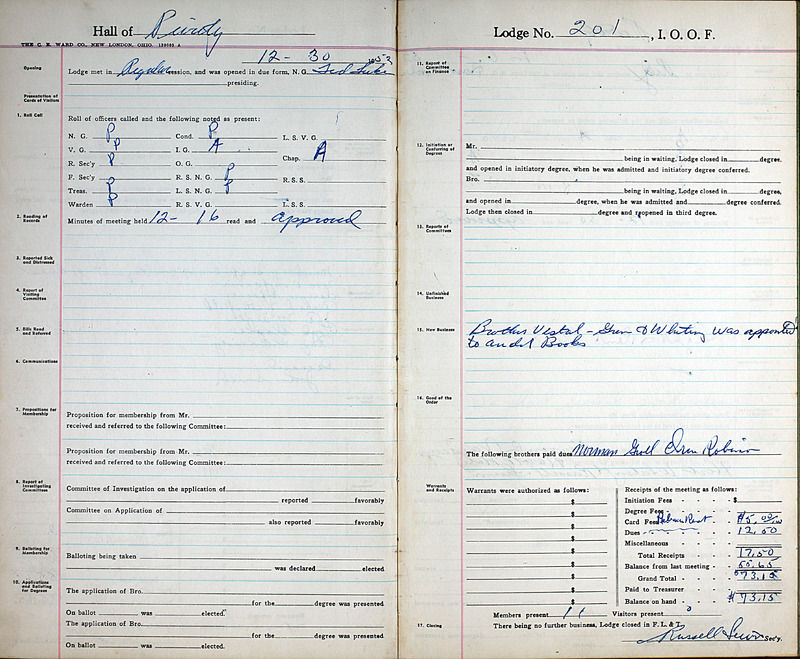 Hall of Purdy
THE C. E. WARD CO., NEW LONDON, OHIO.
12-30 1952
Opening
Lodge met in Regular session, and was opened in due form, N. G. Ted
presiding.
Presentation of Cards of Visitors
1. Roll Call
Roll of officers called and the following noted as present:
N. G. P Cond. P L. S. V. G.
V. G. P I. G. A Chap. A
R. Sec'y P O. G.
F. Sec'y P R. S. N. G. P R. S. S.
Treas. P L. S. N. G. P
Warden P R. S. V. G. L. S. S.
2. Reading of Records
Minutes of meeting held 12-16 read and approved
3. Reported Sick and Distressed
4. Report of Visiting Committee
5. Bills Read and Referred
6. Communications
7. Propositions for Membership
Proposition for membership from Mr.
received and referred to the following Committee:
Proposition for membership from Mr.
received and referred to the following Committee:
8. Report of Investigating Committees
Committee of Investigation on the application of
reported favorably
Committee on Application of
also reported favorably
9. Balloting for Membership
Balloting being taken
was declared elected
10. Applications and Balloting for Degrees
The application of Bro.
for the degree was presented
On ballot was elected.
The application of Bro.
for the degree was presented
On ballot was elected.
Lodge No. 201, I. O. O. F.
11. Report of Committee on Finance
12. Initiation or Conferring of Degrees
Mr.
being in waiting, Lodge closed in degree,
and opened in initiatory degree, when he was admitted and initiatory degree conferred.
Bro.
being in waiting, Lodge closed in degree,
and opened in degree, when he was admitted and degree conferred.
Lodge then closed in degree and reopened in third degree.
13. Reports of Committees
14. Unfinished Business
15. New Business
Brother Vestal - & Whiting was appointed
to audit Books
16. Good of the Order
The following brothers paid dues Norman Groll Robison
Warrants and Receipts
Warrants were authorized as follows:
$
$
$
$
$
$
$
$
$
Receipts of the meeting as follows:
Initiation Fees $
Degree Fees
Card Fees Rent $5.00
Dues 12.50
Miscellaneous
Total Receipts 17.50
Balance from last meeting 55.65
Grand Total $73.15
Paid to Treasurer
Balance on hand $73.15
Members present 11 Visitors present 0
17. Closing
There being no further business, Lodge closed in F. L. & T.
Russell Sec'y.